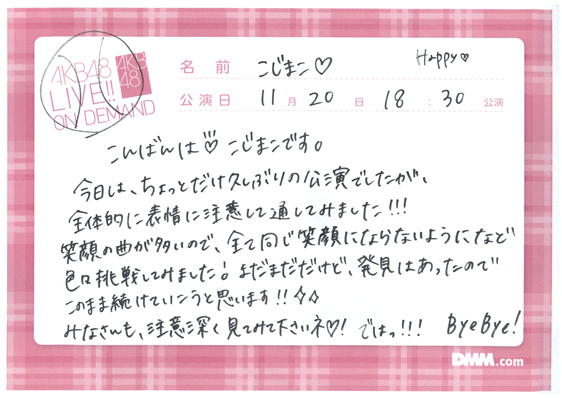 AKB48
LIVE!!
ON DEMAND
AKB
48
名前 こじまこ♡ Happy♡
公演日 11月20日 18:30公演
こんばんは♡ こじまこです。
今日は、ちょっとだけ久しぶりの公演でしたが、
全体的に表情に注意して通してみました!!!
笑顔の曲が多いので、全て同じ笑顔にならないようになど
色々挑戦してみました! まだまだだけど、発見はあったので
このまま続けていこうと思います!!☆☆
みなさんも、注意深く見てみて下さいネ♡! ではっ!!! ByeBye!
DMM.com